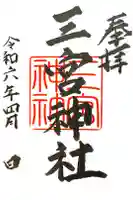 奉拝
三宮神社
三宮
神社
令和六年四月 日